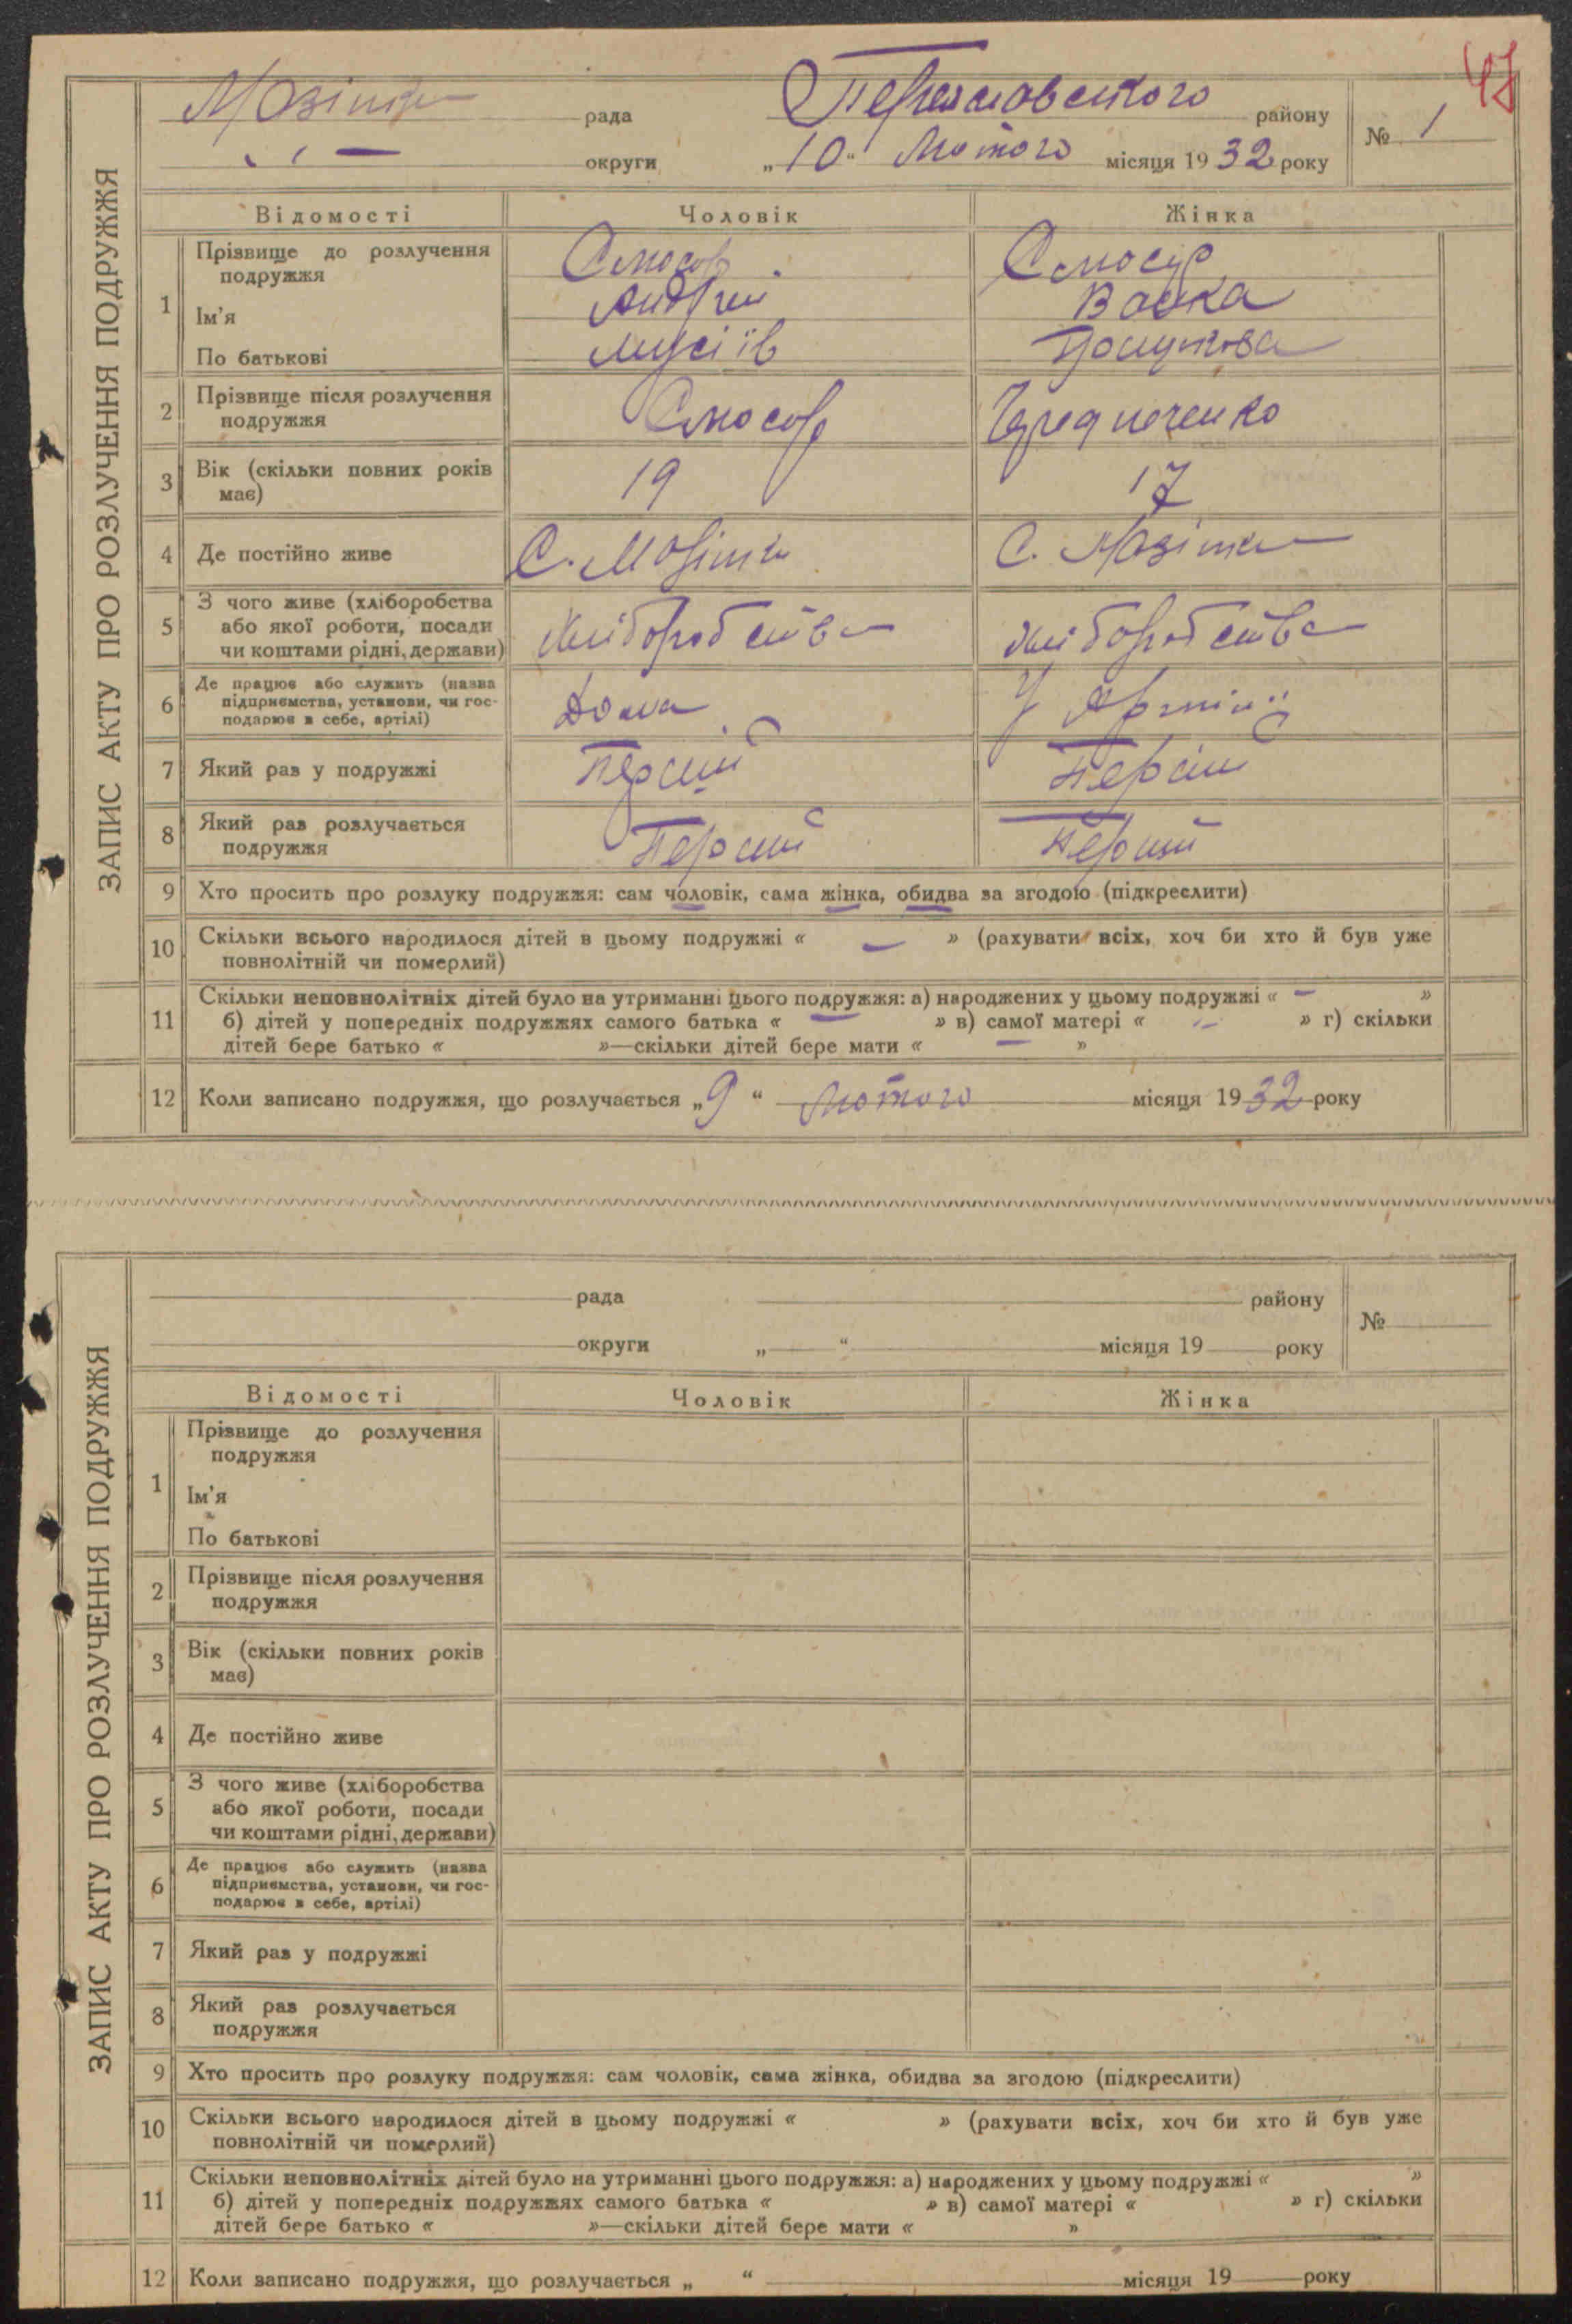 47
рада Переяславського району № 1
округи „10“ Лютого місяця 1932 року
ЗАПИС АКТУ ПРО РОЗЛУЧЕННЯ ПОДРУЖЖЯ
Відомості Чоловік Жінка
1 Прізвище до розлучення
подружжя
Ім'я Андрей
По батькові Мусіїв
2 Прізвище після розлучення
подружжя
3 Вік (скільки повних років
має) 19 17
4 Де постійно живе С. С.
5 З чого живе (хліборобства
або якої роботи, посади
чи коштами рідні, держави) Хліборобства Хліборобства
6 Де працює або служить (назва
підприємства, установи, чи гос-
подарює в себе, артілі) Дома У
7 Який раз у подружжі Перший Перший
8 Який раз розлучається
подружжя Перший Перший
9 Хто просить про розлуку подружжя: сам чоловік, сама жінка, обидва за згодою (підкреслити)
10 Скільки всього народилося дітей в цьому подружжі « — » (рахувати всіх, хоч би хто й був уже
повнолітній чи померлий)
11 Скільки неповнолітніх дітей було на утриманні цього подружжя: а) народжених у цьому подружжі « — »
б) дітей у попередніх подружжях самого батька « — » в) самої матері « — » г) скільки
дітей бере батько « »—скільки дітей бере мати « — »
12 Коли записано подружжя, що розлучається „9“ Лютого місяця 1932 року
рада району №
округи „ “ місяця 19 року
ЗАПИС АКТУ ПРО РОЗЛУЧЕННЯ ПОДРУЖЖЯ
Відомості Чоловік Жінка
1 Прізвище до розлучення
подружжя
Ім'я
По батькові
2 Прізвище після розлучення
подружжя
3 Вік (скільки повних років
має)
4 Де постійно живе
5 З чого живе (хліборобства
або якої роботи, посади
чи коштами рідні, держави)
6 Де працює або служить (назва
підприємства, установи, чи гос-
подарює в себе, артілі)
7 Який раз у подружжі
8 Який раз розлучається
подружжя
9 Хто просить про розлуку подружжя: сам чоловік, сама жінка, обидва за згодою (підкреслити)
10 Скільки всього народилося дітей в цьому подружжі « » (рахувати всіх, хоч би хто й був уже
повнолітній чи померлий)
11 Скільки неповнолітніх дітей було на утриманні цього подружжя: а) народжених у цьому подружжі « »
б) дітей у попередніх подружжях самого батька « » в) самої матері « » г) скільки
дітей бере батько « »—скільки дітей бере мати « »
12 Коли записано подружжя, що розлучається „ “ місяця 19 року